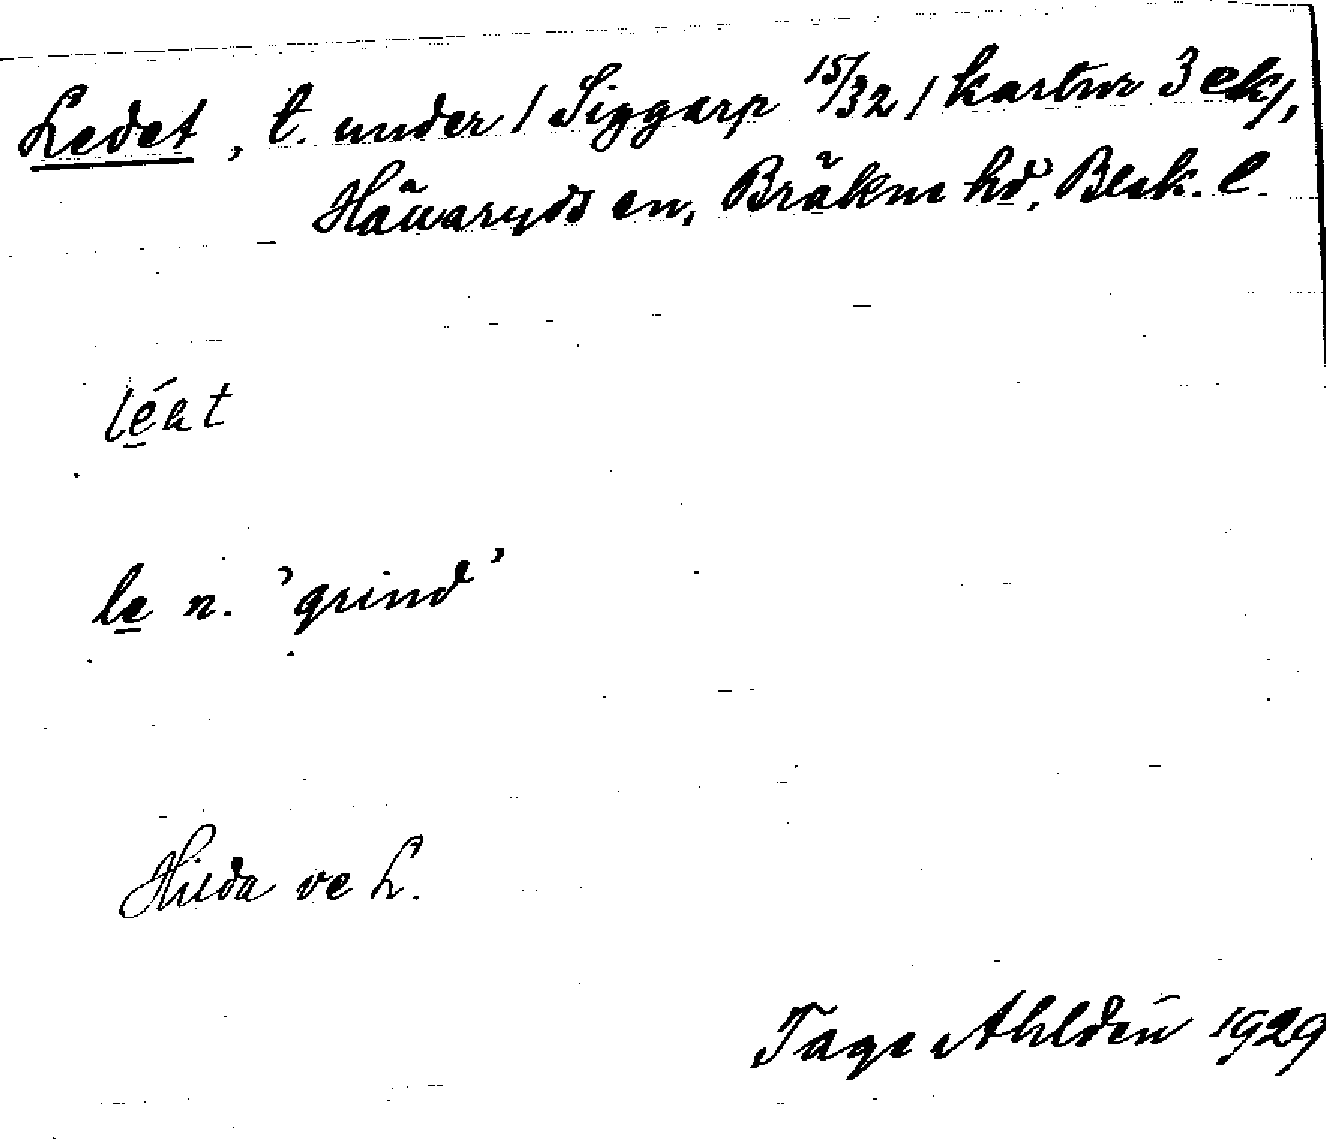 Ledet, t. under / Siggarp 15/32 / kartur 3 ek/,
Hällaryds sn, Bräkne hd, Blek. l.
le n. 'grind'
Hilda ve L.
Tage Ahldén 1929